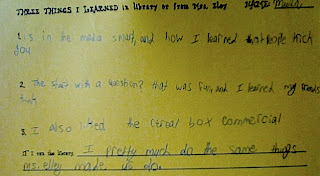 THREE THINGS I LEARNED in library or from Mrs. Elley NAME
1. is in the media smart, and how I learned that people trick
you
2. The start with a question? that was fun, and I learned my friends
3. I also liked the cereal box commercial
If I ran the library I pretty much do the same things
ms. elley made us do.